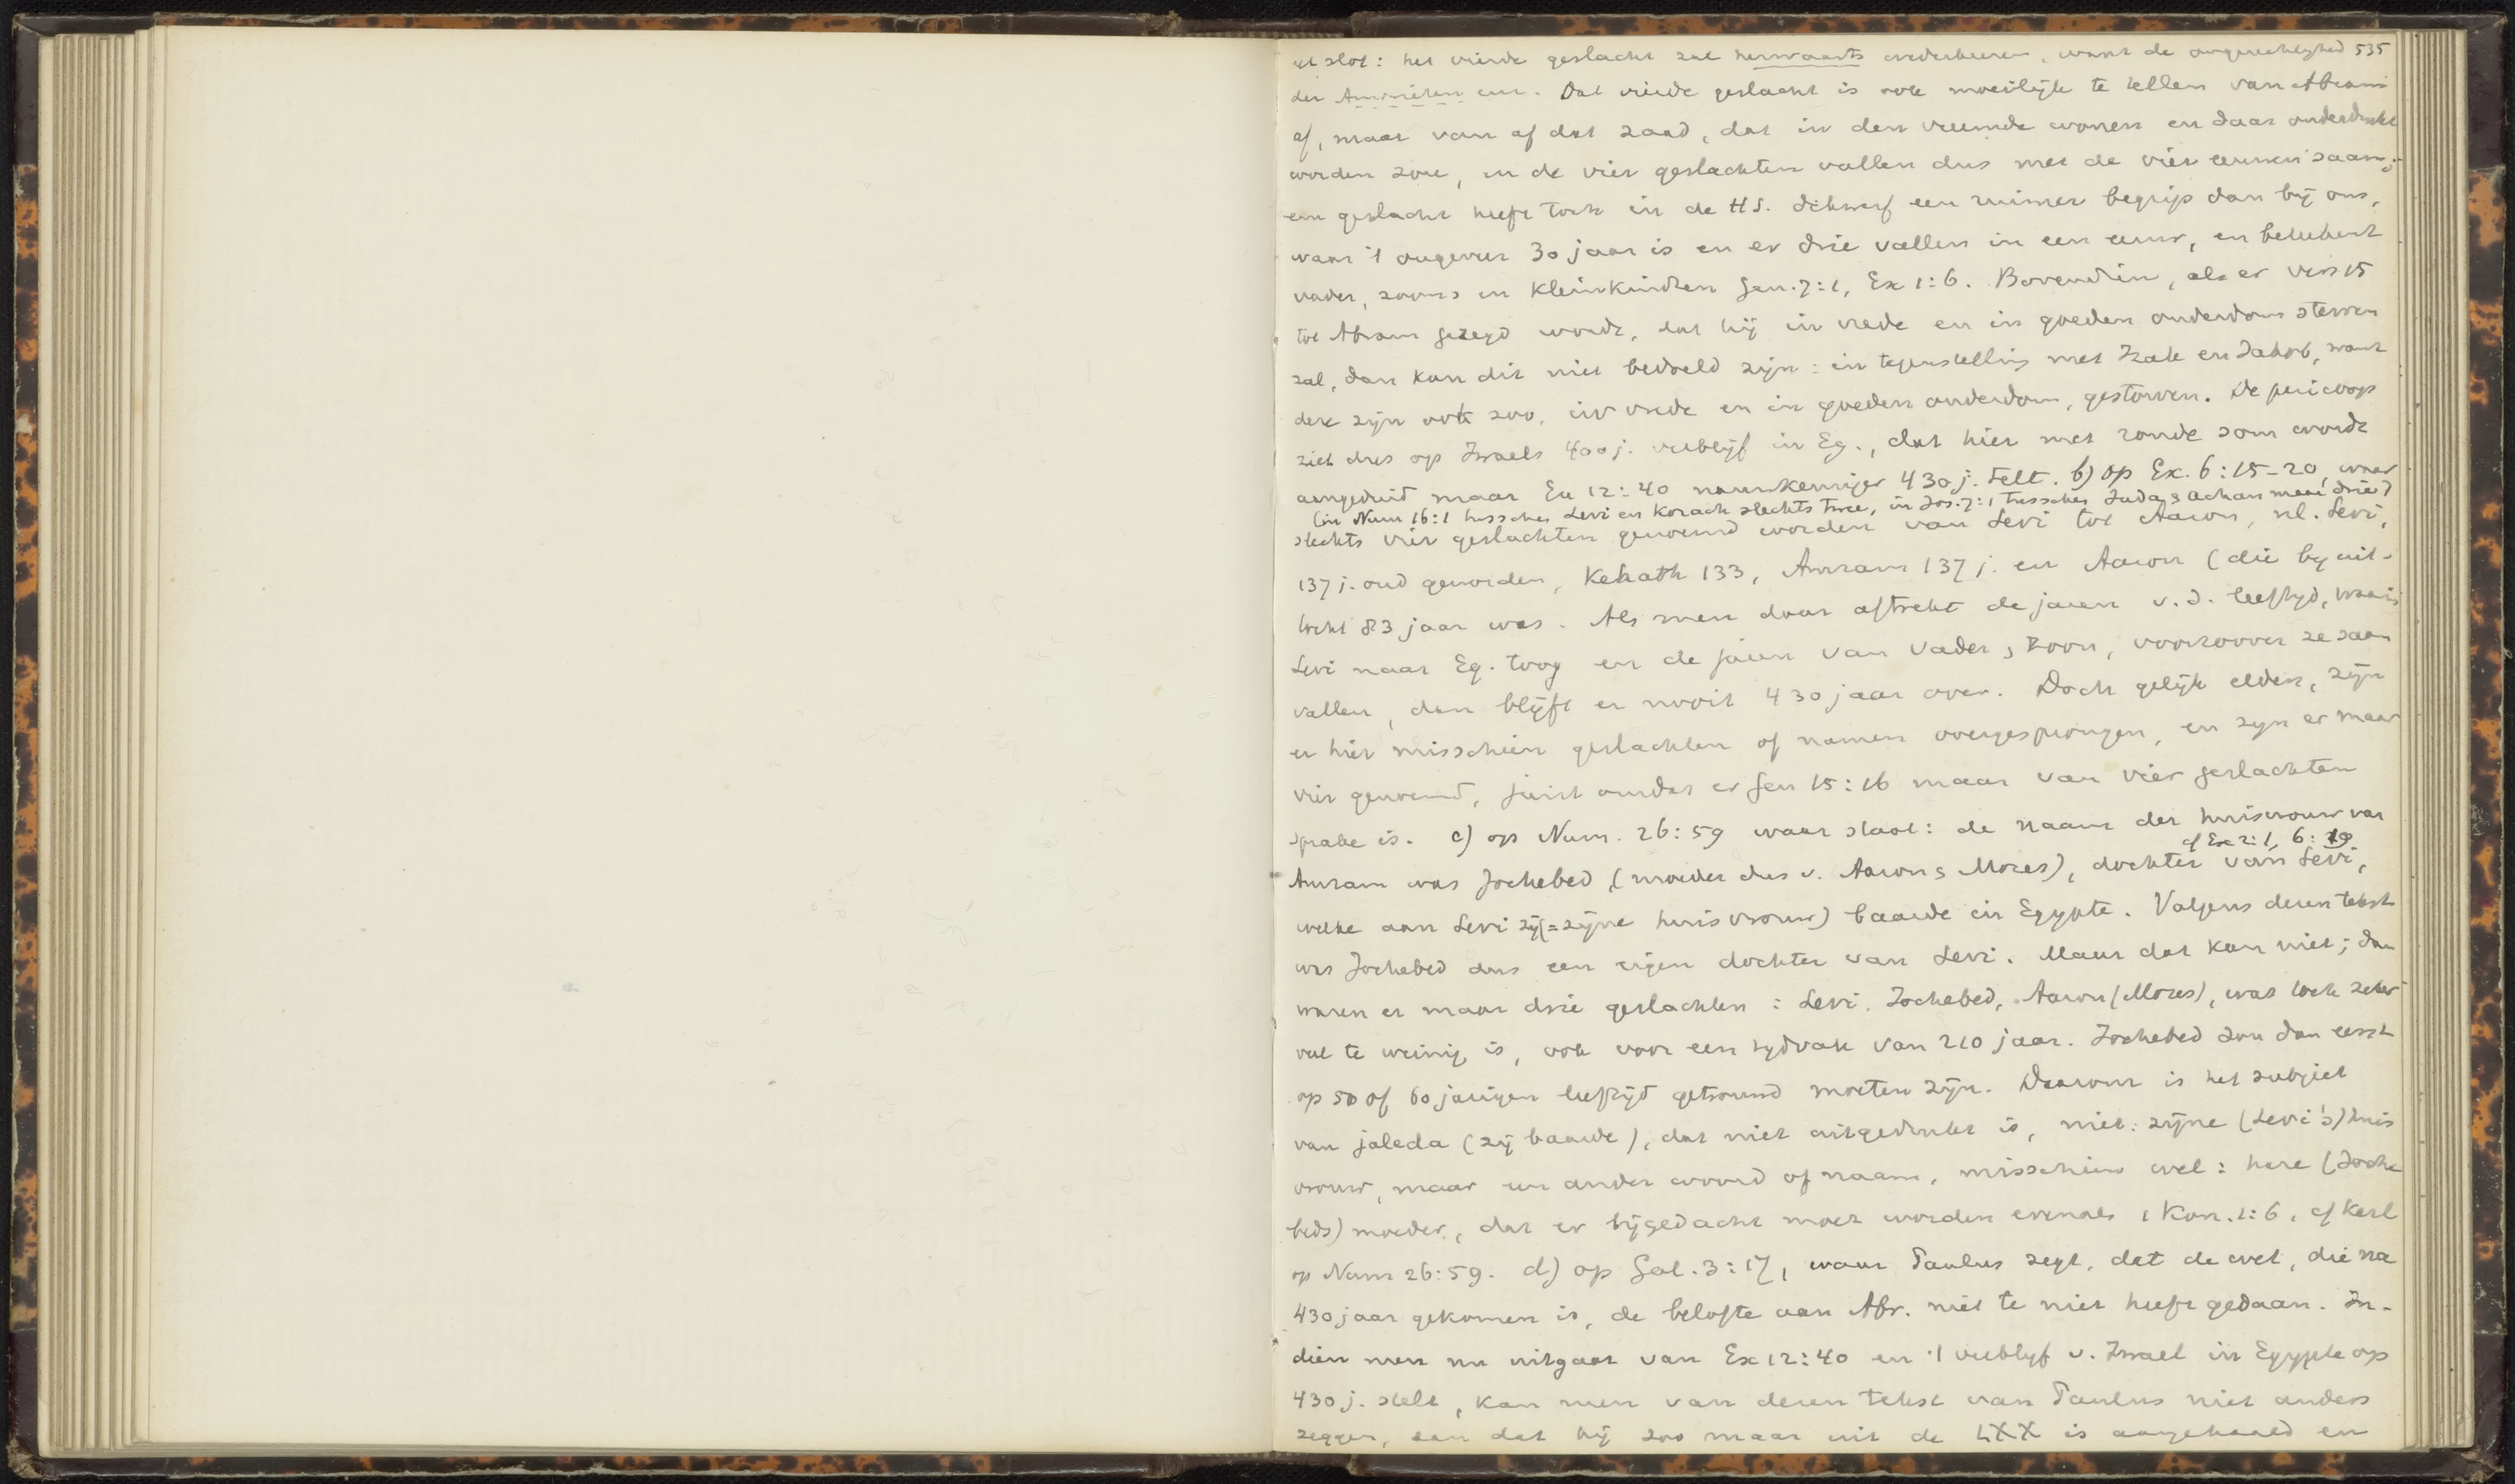 het slot: het vierde geslacht zal herwaarts wederkeeren, want de ongerechtigheid 535
der Amorieten enz. Dat vierde geslacht is ook moeilijk te tellen van Abram
af, maar van af dat zaad, dat in den vreemde wonen en daar onderdrukt
worden zou, en de vier geslachten vallen dus met de vier eeuwen saam;
een geslacht heeft toch in de H.S. dikwerf een ruimer begrip dan bij ons,
waar 't ongeveer 30 jaar is en er drie vallen in een eeuw, en beteekent
vader, zoons en kleinkinderen Gen. 7:1, Ex 1:6. Bovendien, als er vers 15
tot Abram gezegd wordt, dat hij in vrede en in goeden ouderdom sterven
zal, dan kan dit niet bedoeld zijn: in tegenstelling met Izak en Jakob, want
deze zijn ook zoo, in vrede en in goeden ouderdom, gestorven. De pericoop
ziet dus op Israels 400 j. verblijf in Eg., dat hier met ronde som wordt
aangeduid maar Ex 12:40 nauwkeuriger 430 j. telt. b) op Ex. 6:15-20, waar
(in Num 16:1 tusschen Levi en Korach slechts twee, in Jos. 7:1 tusschen Juda & Achan maar drie)
slechts vier geslachten genoemd worden van Levi tot Aaron, nl. Levi,
137 j. oud geworden, Kehath 133, Amram 137 j. en Aaron (die bij uit-
tocht 83 jaar was. Als men daar aftrekt de jaren v. d. leeftijd, waarin
Levi naar Eg. toog en de jaren van vader & zoon, voorzoover ze saam
vallen, dan blijft er nooit 430 jaar over. Doch gelijk elders, zijn
er hier misschien geslachten of namen overgesprongen, en zijn er maar
vier genoemd, juist omdat er Gen 15:16 maar van vier geslachten
sprake is. c) op Num. 26:59 waar staat: de naam der huisvrouw van
cf Ex 2:1, 6:19
Amram was Jochebed, (moeder dus v. Aaron & Mozes), dochter van Levi,
welke aan Levi zij (= zijne huisvrouw) baarde in Egypte. Volgens dezen tekst
was Jochebed dus een eigen dochter van Levi. Maar dat kan niet; dan
waren er maar drie geslachten: Levi, Jochebed, Aaron (Mozes), wat toch zeker
veel te weinig is, ook voor een tijdvak van 210 jaar. Jochebed zou dan eerst
op 50 of 60 jarigen leeftijd getrouwd moeten zijn. Daarom is het subject
van jaleda (zij baarde), dat niet uitgedrukt is, niet: zijne (Levi's) huis
vrouw, maar een ander woord of naam, misschien wel: hare (Joche
beds) moeder, dat er bijgedacht moet worden evenals 1 Kon. 1:6, cf Keil
op Num 26:59. d) op Gal. 3:17, waar Paulus zegt, dat de wet, die na
430 jaar gekomen is, de belofte aan Abr. niet te niet heeft gedaan. In-
dien men nu uitgaat van Ex 12:40 en 't verblijf v. Israel in Egypte op
430 j. stelt, kan men van dezen tekst van Paulus niet anders
zeggen, dan dat hij zoo maar uit de LXX is aangehaald en